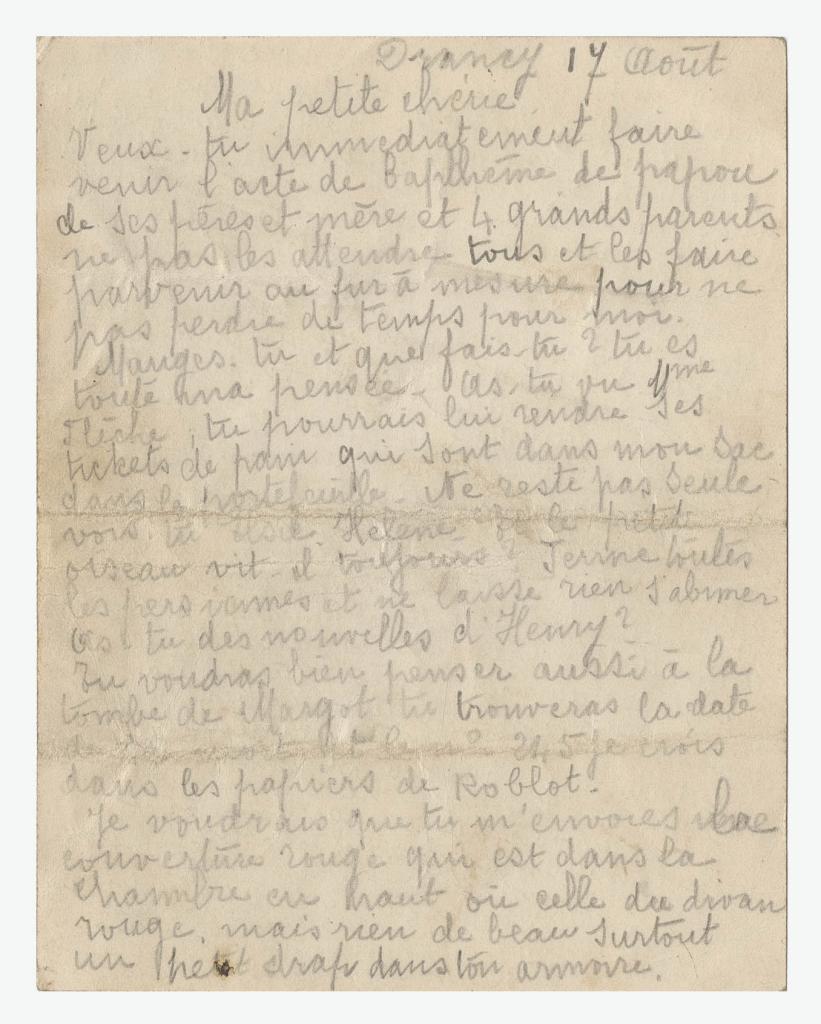 Drancy 17 Août
Ma petite chérie
Veux-tu immediatement faire
venir l'acte de baptheme de papou
de ses péres et mère et 4 grands parents
ne pas les attendre tous et les faire
parvenir au fur à mesure pour ne
pas perdre de temps pour moi.
Manges-tu et que fais-tu ? tu es
toute ma pensée - As-tu vu Mme
Flêche, tu pourrais lui rendre ses
tickets de pain qui sont dans mon sac
dans le portefeuille - Ne reste pas seule -
vois-tu Elsie. Helene - le petit
oiseau vit-il toujours ? Ferme toutes
les persiennes et ne laisse rien s'abimer
As-tu des nouvelles d'Henry ?
Tu voudras bien penser aussi à la
tombe de Margot tu trouveras la date
de sa mort et le n° 245 je crois
dans les papiers de Roblot.
Je voudrais que tu m'envoies
couverture rouge qui est dans la
chambre en haut où celle du divan
rouge, mais rien de beau surtout
un petit drap dans ton armoire.